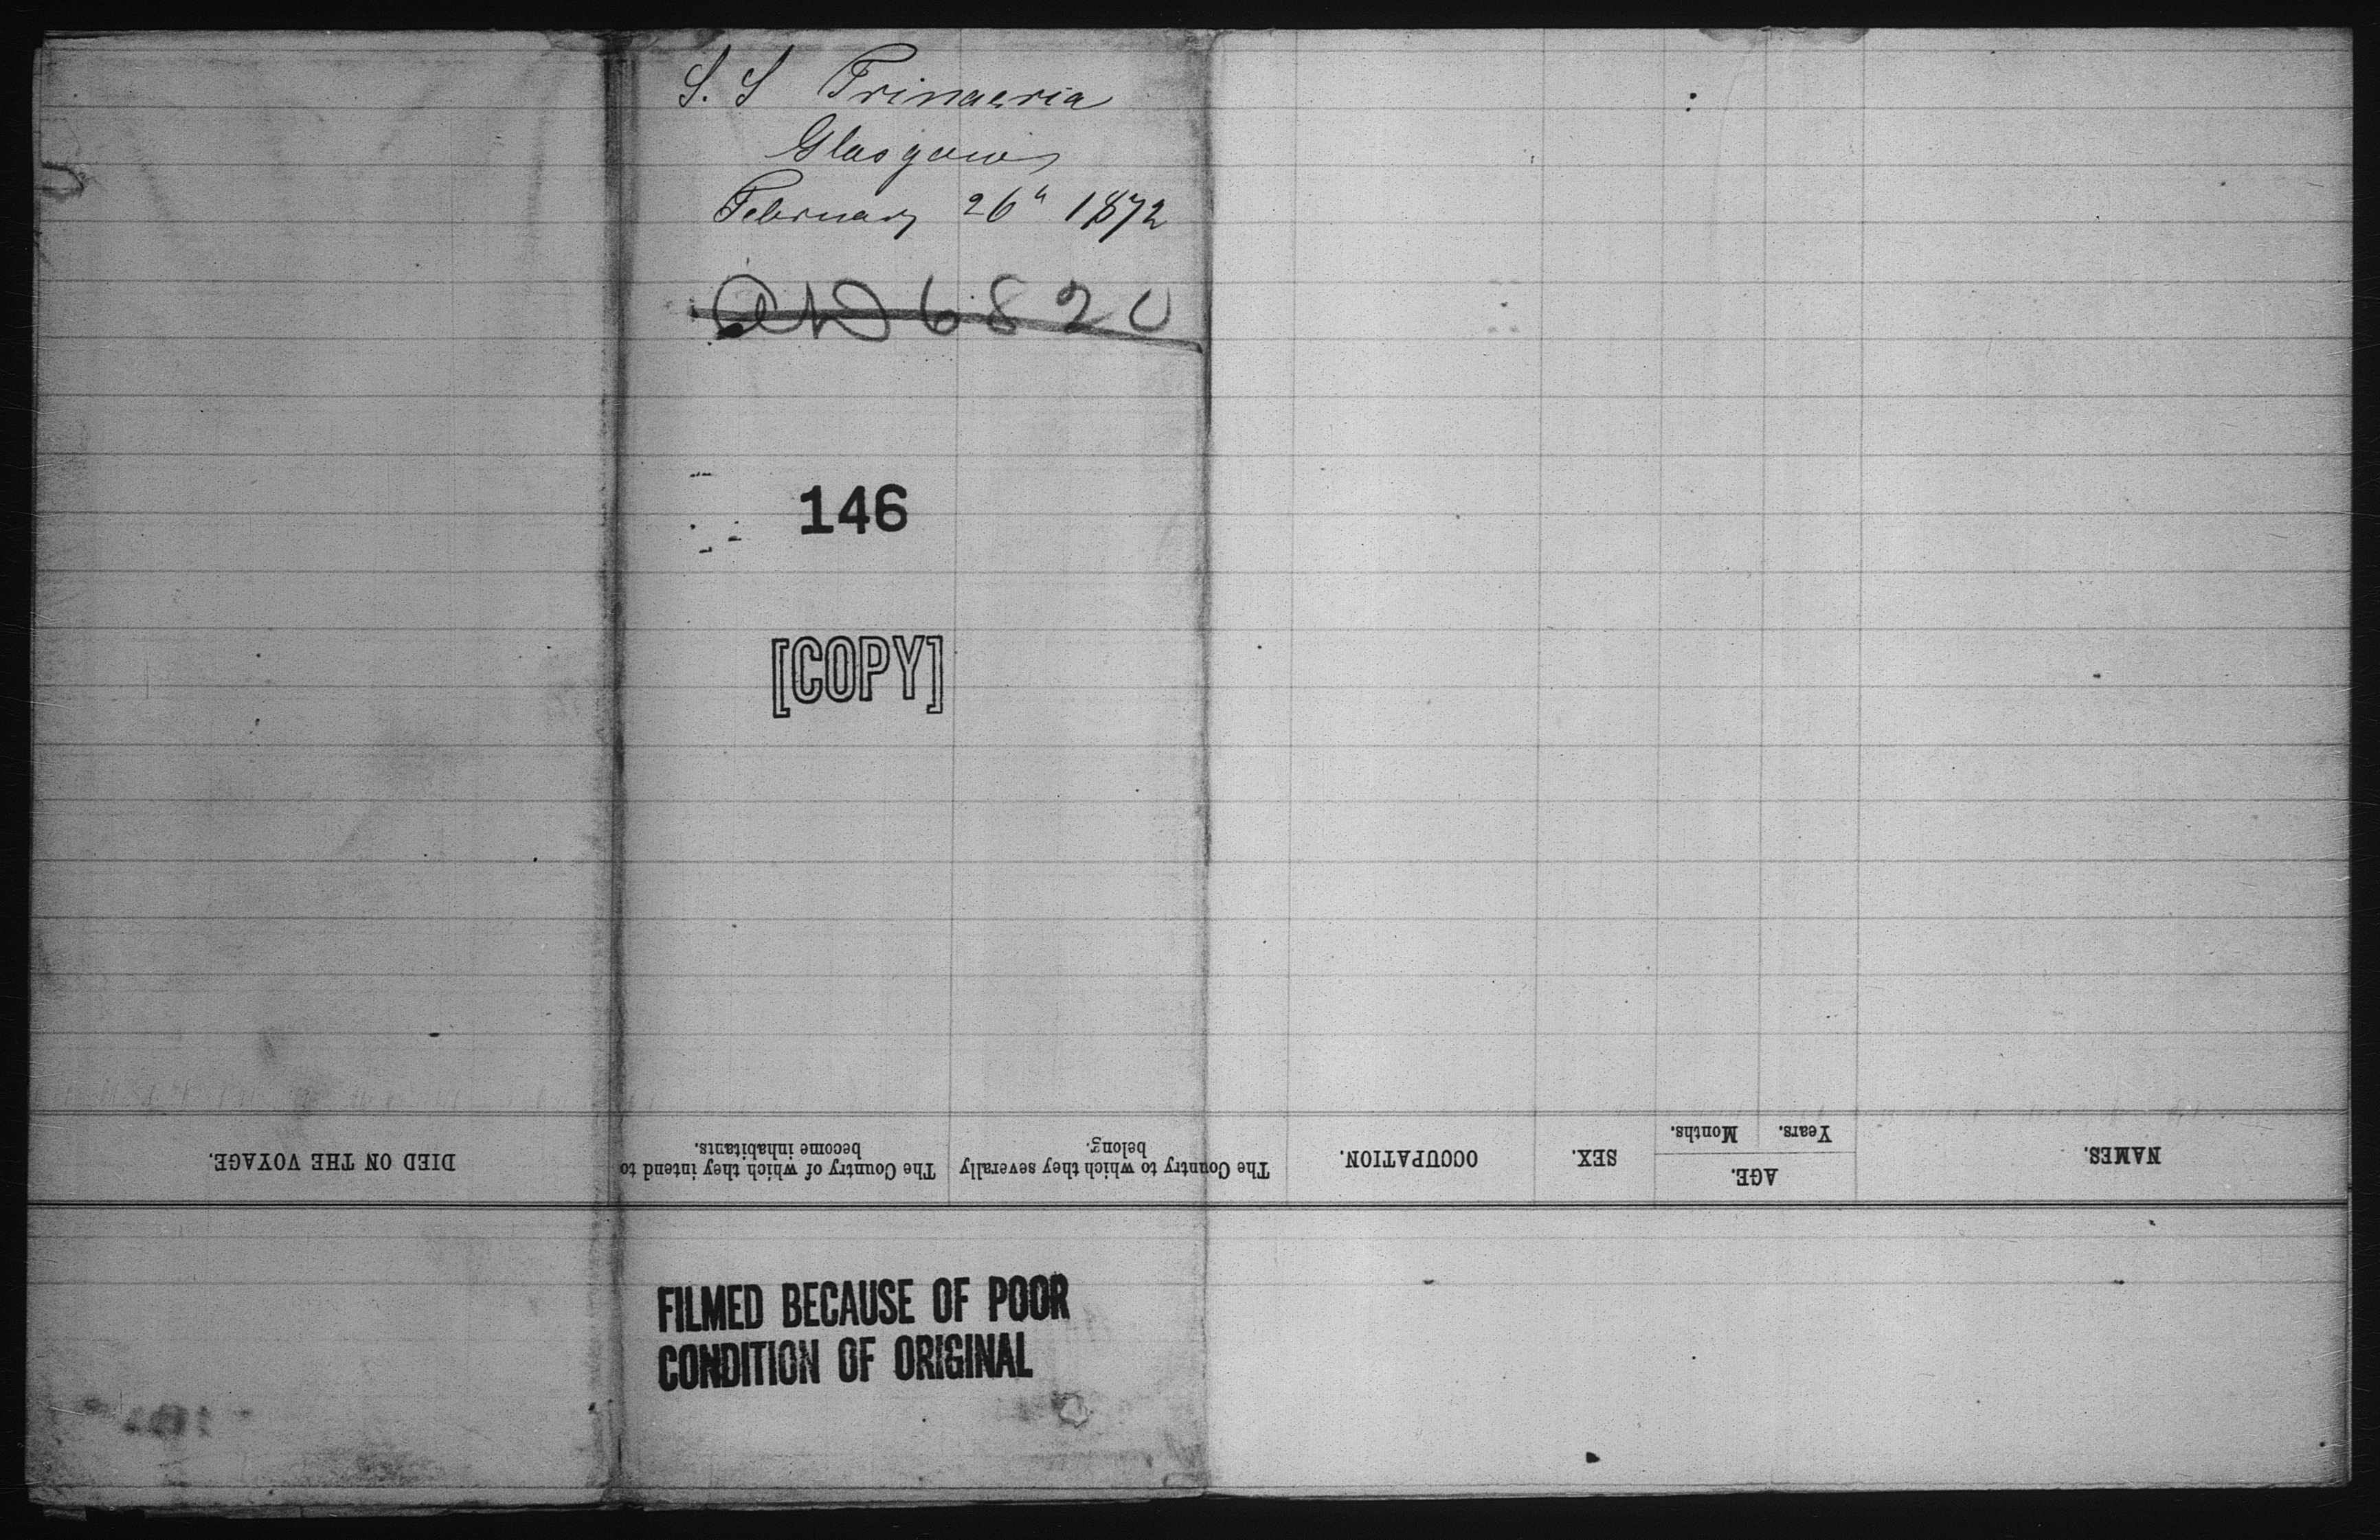 S. S Trinacria
Glasgow
February 26th 1872
6820
146
[COPY]
NAMES.
AGE.
Years. Months.
SEX.
OCCUPATION.
The Country to which they severally
belong.
The Country of which they intend to
become inhabitants.
DIED ON THE VOYAGE.
FILMED BECAUSE OF POOR
CONDITION OF ORIGINAL